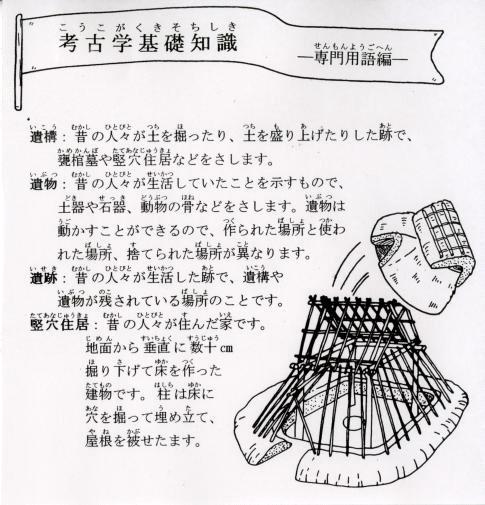 考古学基礎知識
―専門用語編―
遺構：昔の人々が土を掘ったり、土を盛り上げたりした跡で、
甕棺墓や竪穴住居などをさします。
遺物：昔の人々が生活していたことを示すもので、
土器や石器、動物の骨などをさします。遺物は
動かすことができるので、作られた場所と使わ
れた場所、捨てられた場所が異なります。
遺跡：昔の人々が生活した跡で、遺構や
遺物が残されている場所のことです。
竪穴住居：昔の人々が住んだ家です。
地面から垂直に数十cm
掘り下げて床を作った
建物です。柱は床に
穴を掘って埋め立て、
屋根を被せたます。